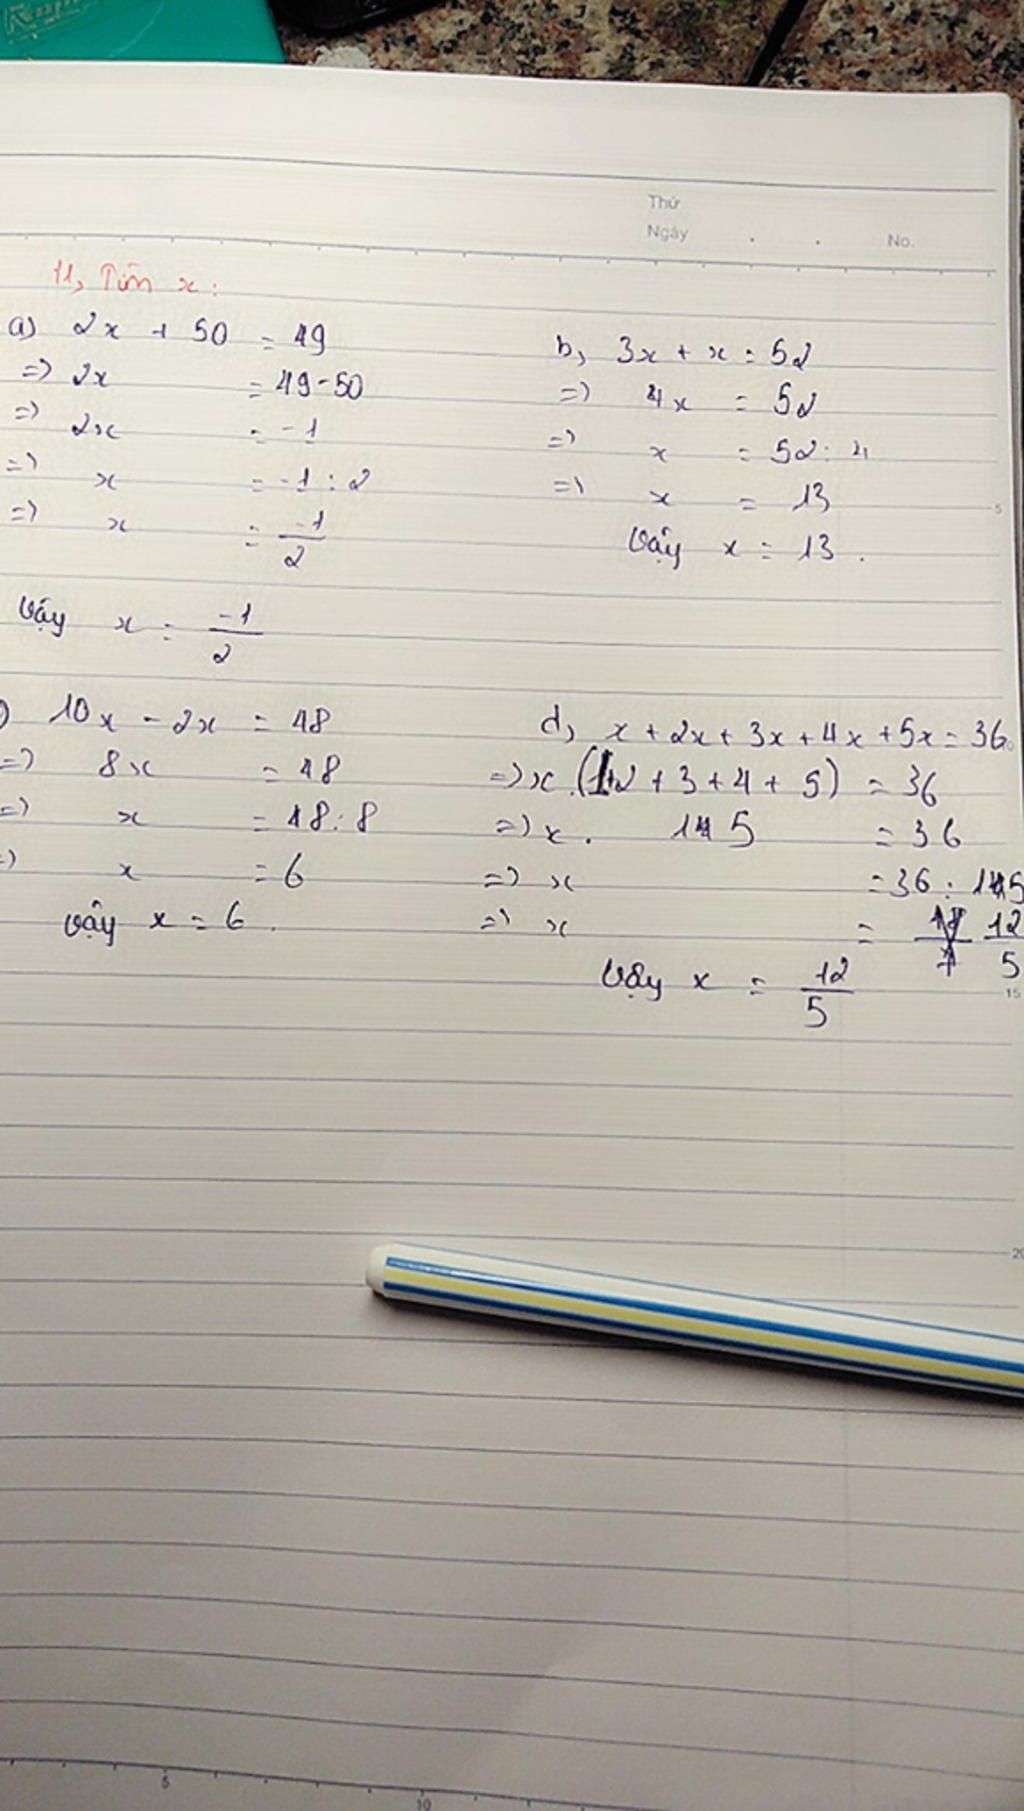 Thứ
Ngày . . No.
11, Tìm x:
a) 2x + 50 = 49
=> 2x = 49-50
=> 2x = -1
=> x = -1 : 2
=> x = -1/2
Vậy x = -1/2
b, 3x + x = 52
=> 4x = 52
=> x = 52 : 4
=> x = 13
Vậy x = 13 .
) 10x - 2x = 48
=> 8x = 48
=> x = 48 : 8
=> x = 6
Vậy x = 6 .
d, x + 2x + 3x + 4x + 5x = 36
=> x . (1+2 + 3 + 4 + 5) = 36
=> x . 15 = 36
=> x = 36 : 15
=> x = 12/5
Vậy x = 12/5
5
15
20
5
10